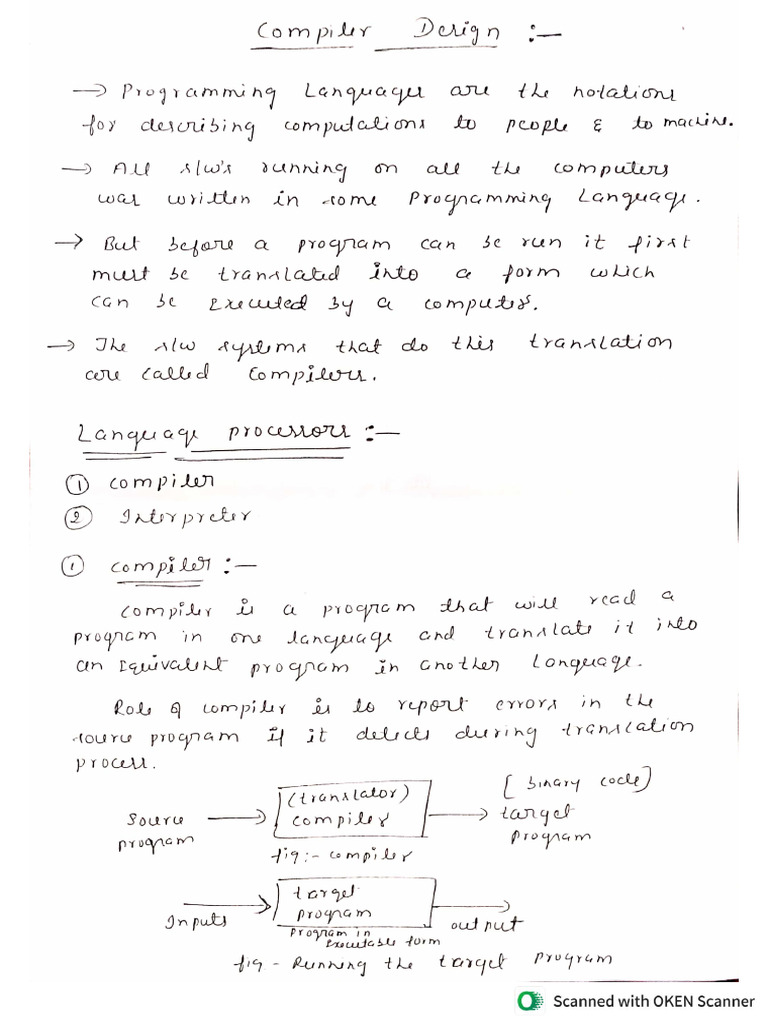 Compiler Design :-
→ Programming Languages are the notations
for describing computations to people & to machine.
→ All s/w's running on all the computers
was written in some Programming Language.
→ But before a program can be run it first
must be translated into a form which
can be executed by a computer.
→ The s/w systems that do this translation
are called Compilers.
Language processors :-
① compiler
② Interpreter
① compiler :-
compiler is a program that will read a
program in one language and translate it into
an Equivalent program in another Language.
Role of compiler is to report errors in the
source program if it detects during translation
process.
source program → (translator) compiler → [binary code) target program
fig :- compiler
Inputs → target program → output
program in executable form
fig - Running the target program
Scanned with OKEN Scanner